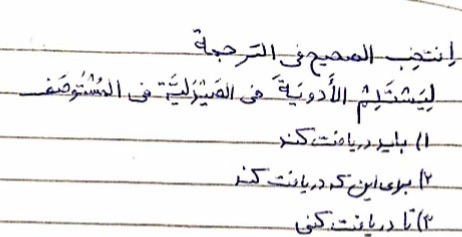 اِنتخِب الصحیح فی التَرجمة
لِیَستَلِمُ الأَدویَةَ فی الصَیْدَلیَّة فی المُسْتَوصَف
۱) باید دریافت کند
۲) برای این که دریافت کند
۳) تا دریافت کنی